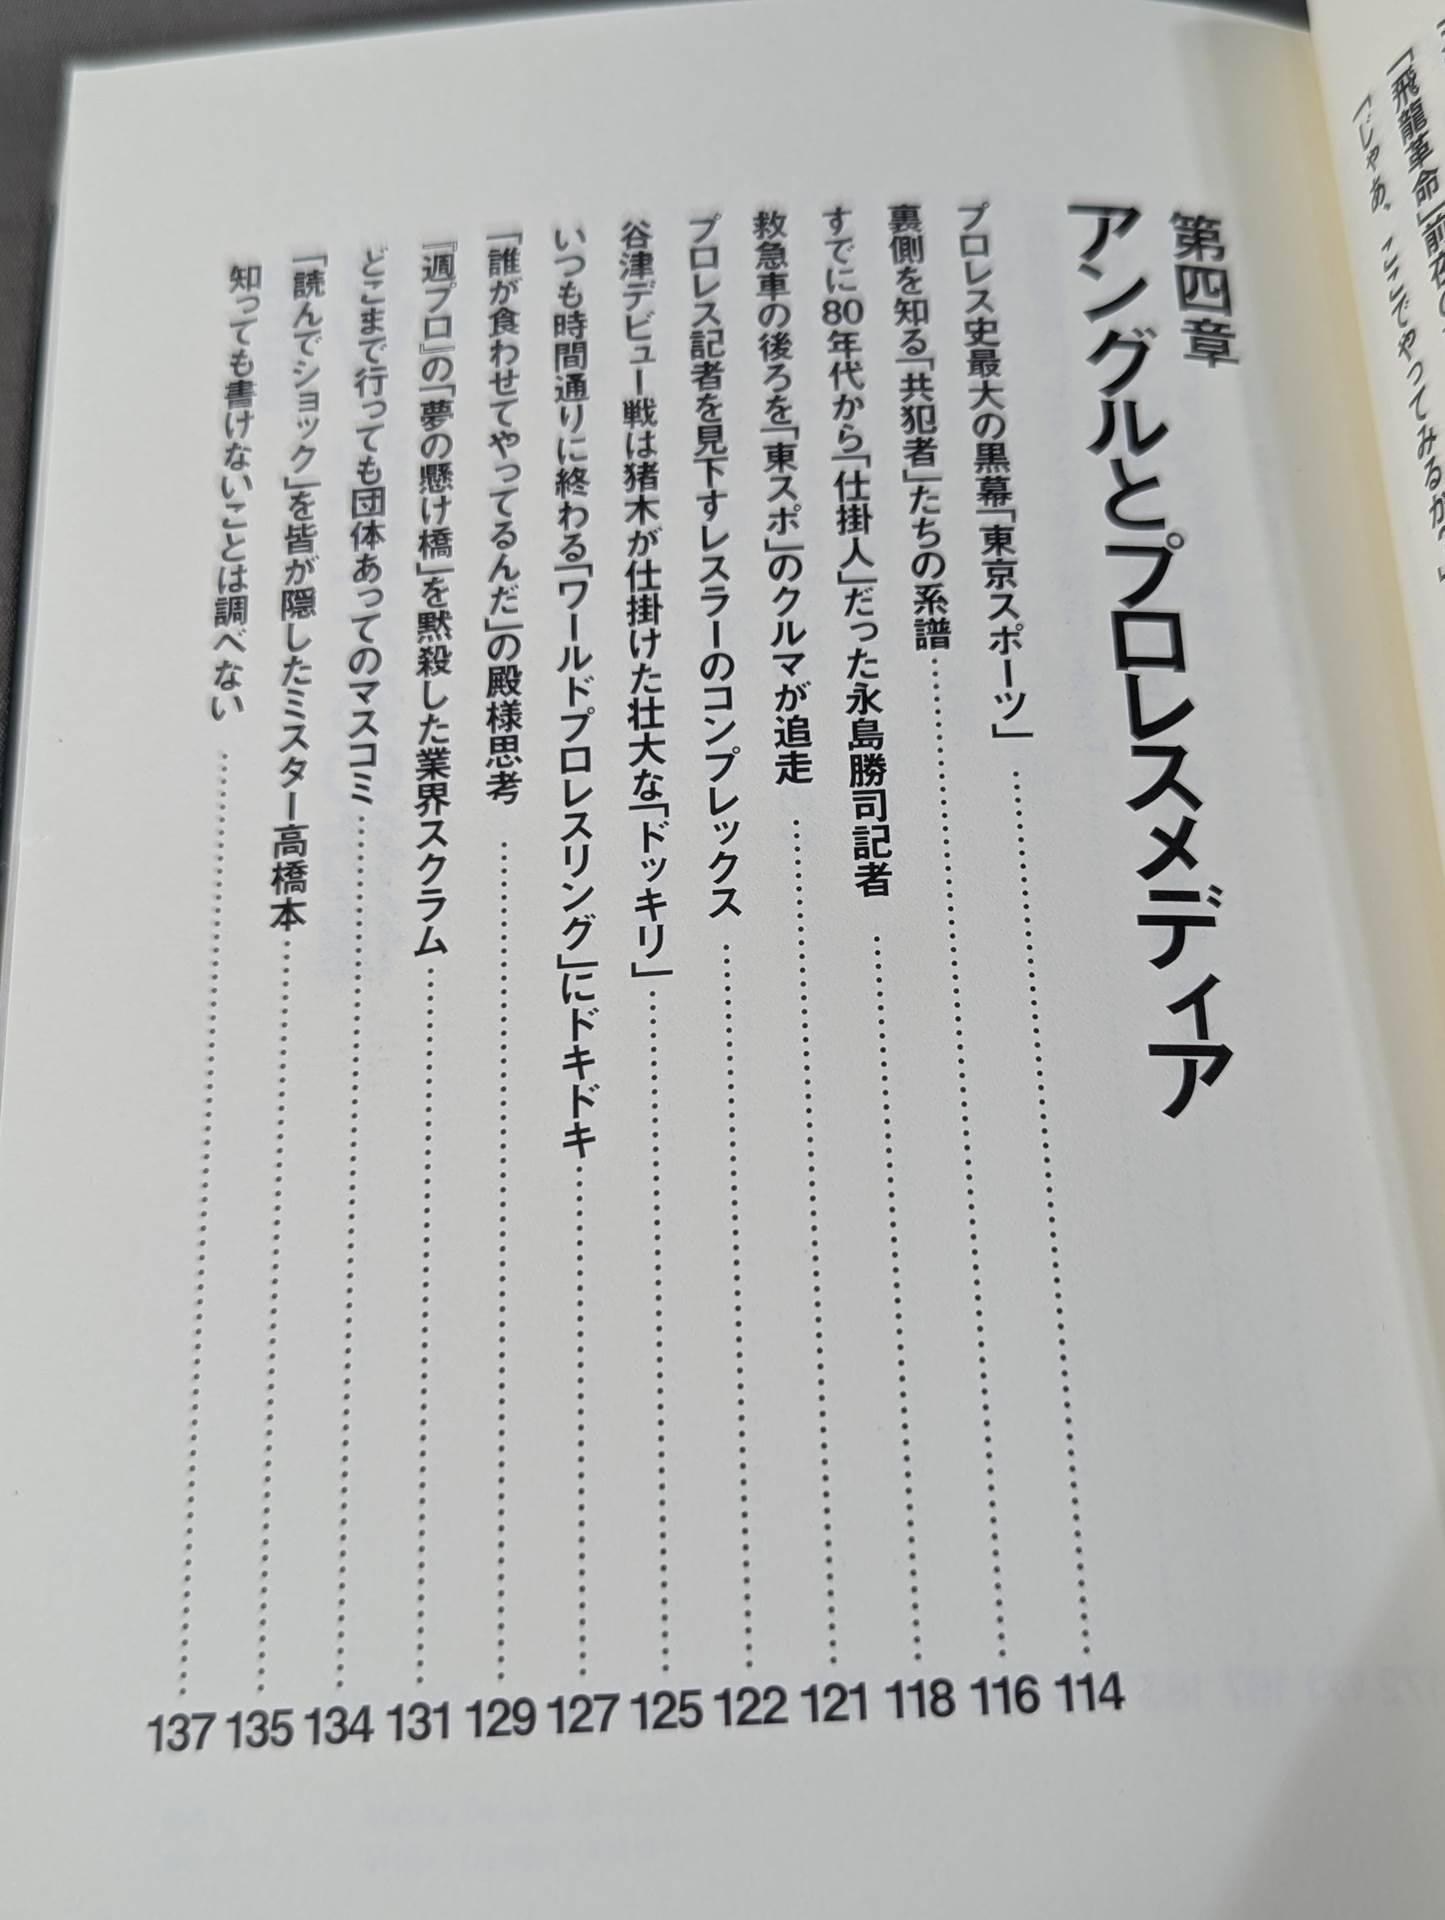 「飛龍革命」前夜の
「じゃあ、ここでやってみるか?」
第四章
アングルとプロレスメディア
プロレス史最大の黒幕「東京スポーツ」……114
裏側を知る「共犯者」たちの系譜……116
すでに80年代から「仕掛人」だった永島勝司記者……118
救急車の後ろを「東スポ」のクルマが追走……121
プロレス記者を見下すレスラーのコンプレックス……122
谷津デビュー戦は猪木が仕掛けた壮大な「ドッキリ」……125
いつも時間通りに終わる「ワールドプロレスリング」にドキドキ……127
「誰が食わせてやってるんだ」の殿様思考……129
『週プロ』の「夢の懸け橋」を黙殺した業界スクラム……131
どこまで行っても団体あってのマスコミ……134
「読んでショック」を皆が隠したミスター高橋本……135
知っても書けないことは調べない……137